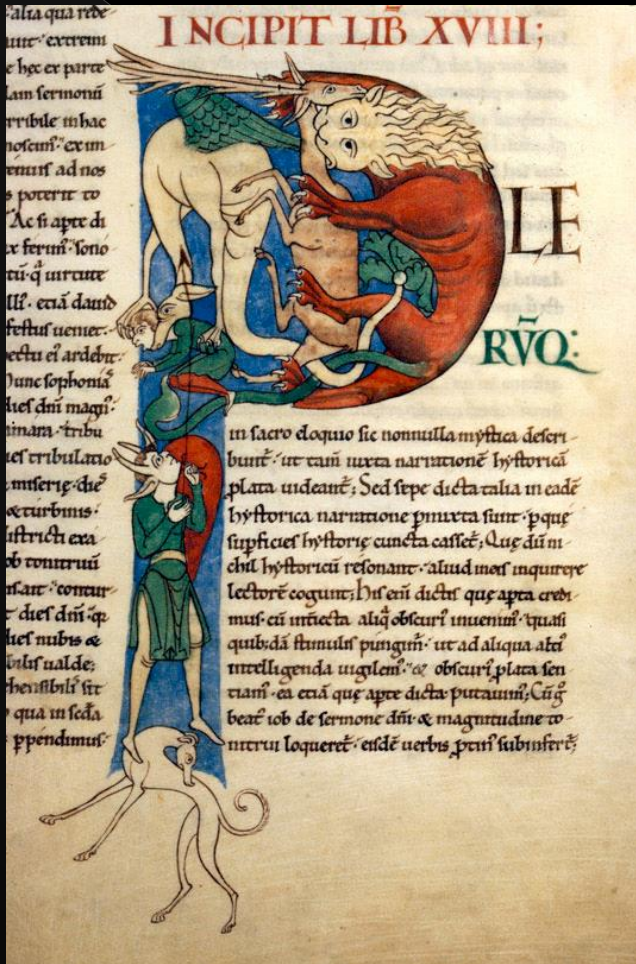 alia qua rede
extremi
e hęc ex parte
lam sermonū
rribile in hac
tenuis ad nos
s poterit to
Ac si apte di
sono
tū· q̄ uirtute
etiā dauid
festus ueniet·
pectu ei ardebit:
Nunc sophonia
dies dn̄i magn
amara· tribu
ies tribulatio
miserię· dies
& turbinis·
districti exa
ob tonitruū
contur
dies dn̄i·
dies nubis &
bilis ualde;
rhensibilis sit
qua in scd̄a
ppendimus·
INCIPIT LIB̄ XVIII;
PLE
RV̄Q:
in sacro eloquio sic nonnulla mystica descri-
bunt̄· ut tam̄ iuxta narrationē hystoricā
plata uideant̄; Sed sepe dicta talia in eadē
hystorica narratione pmixta sunt· p que
supficies hystorię cuncta casset̄; Quę dū ni-
chil hystoricū resonant· aliud in eis inquirere
lectorē cogunt; His eni dictis quę apta credi-
mus· cū interiecta aliq̄ obscuri inuenim̄· quasi
quib;dā stimulis pungim̄· ut ad aliqua alti
intelligenda uigilem̄· & obscuri plata sen
tiam̄· ea etiā quę apte dicta putauim̄; Cū g̊
beat' iob de sermone dn̄i & magnitudine to-
nitrui loqueret̄· eisdē uerbis ptin̄ subinfert̄;